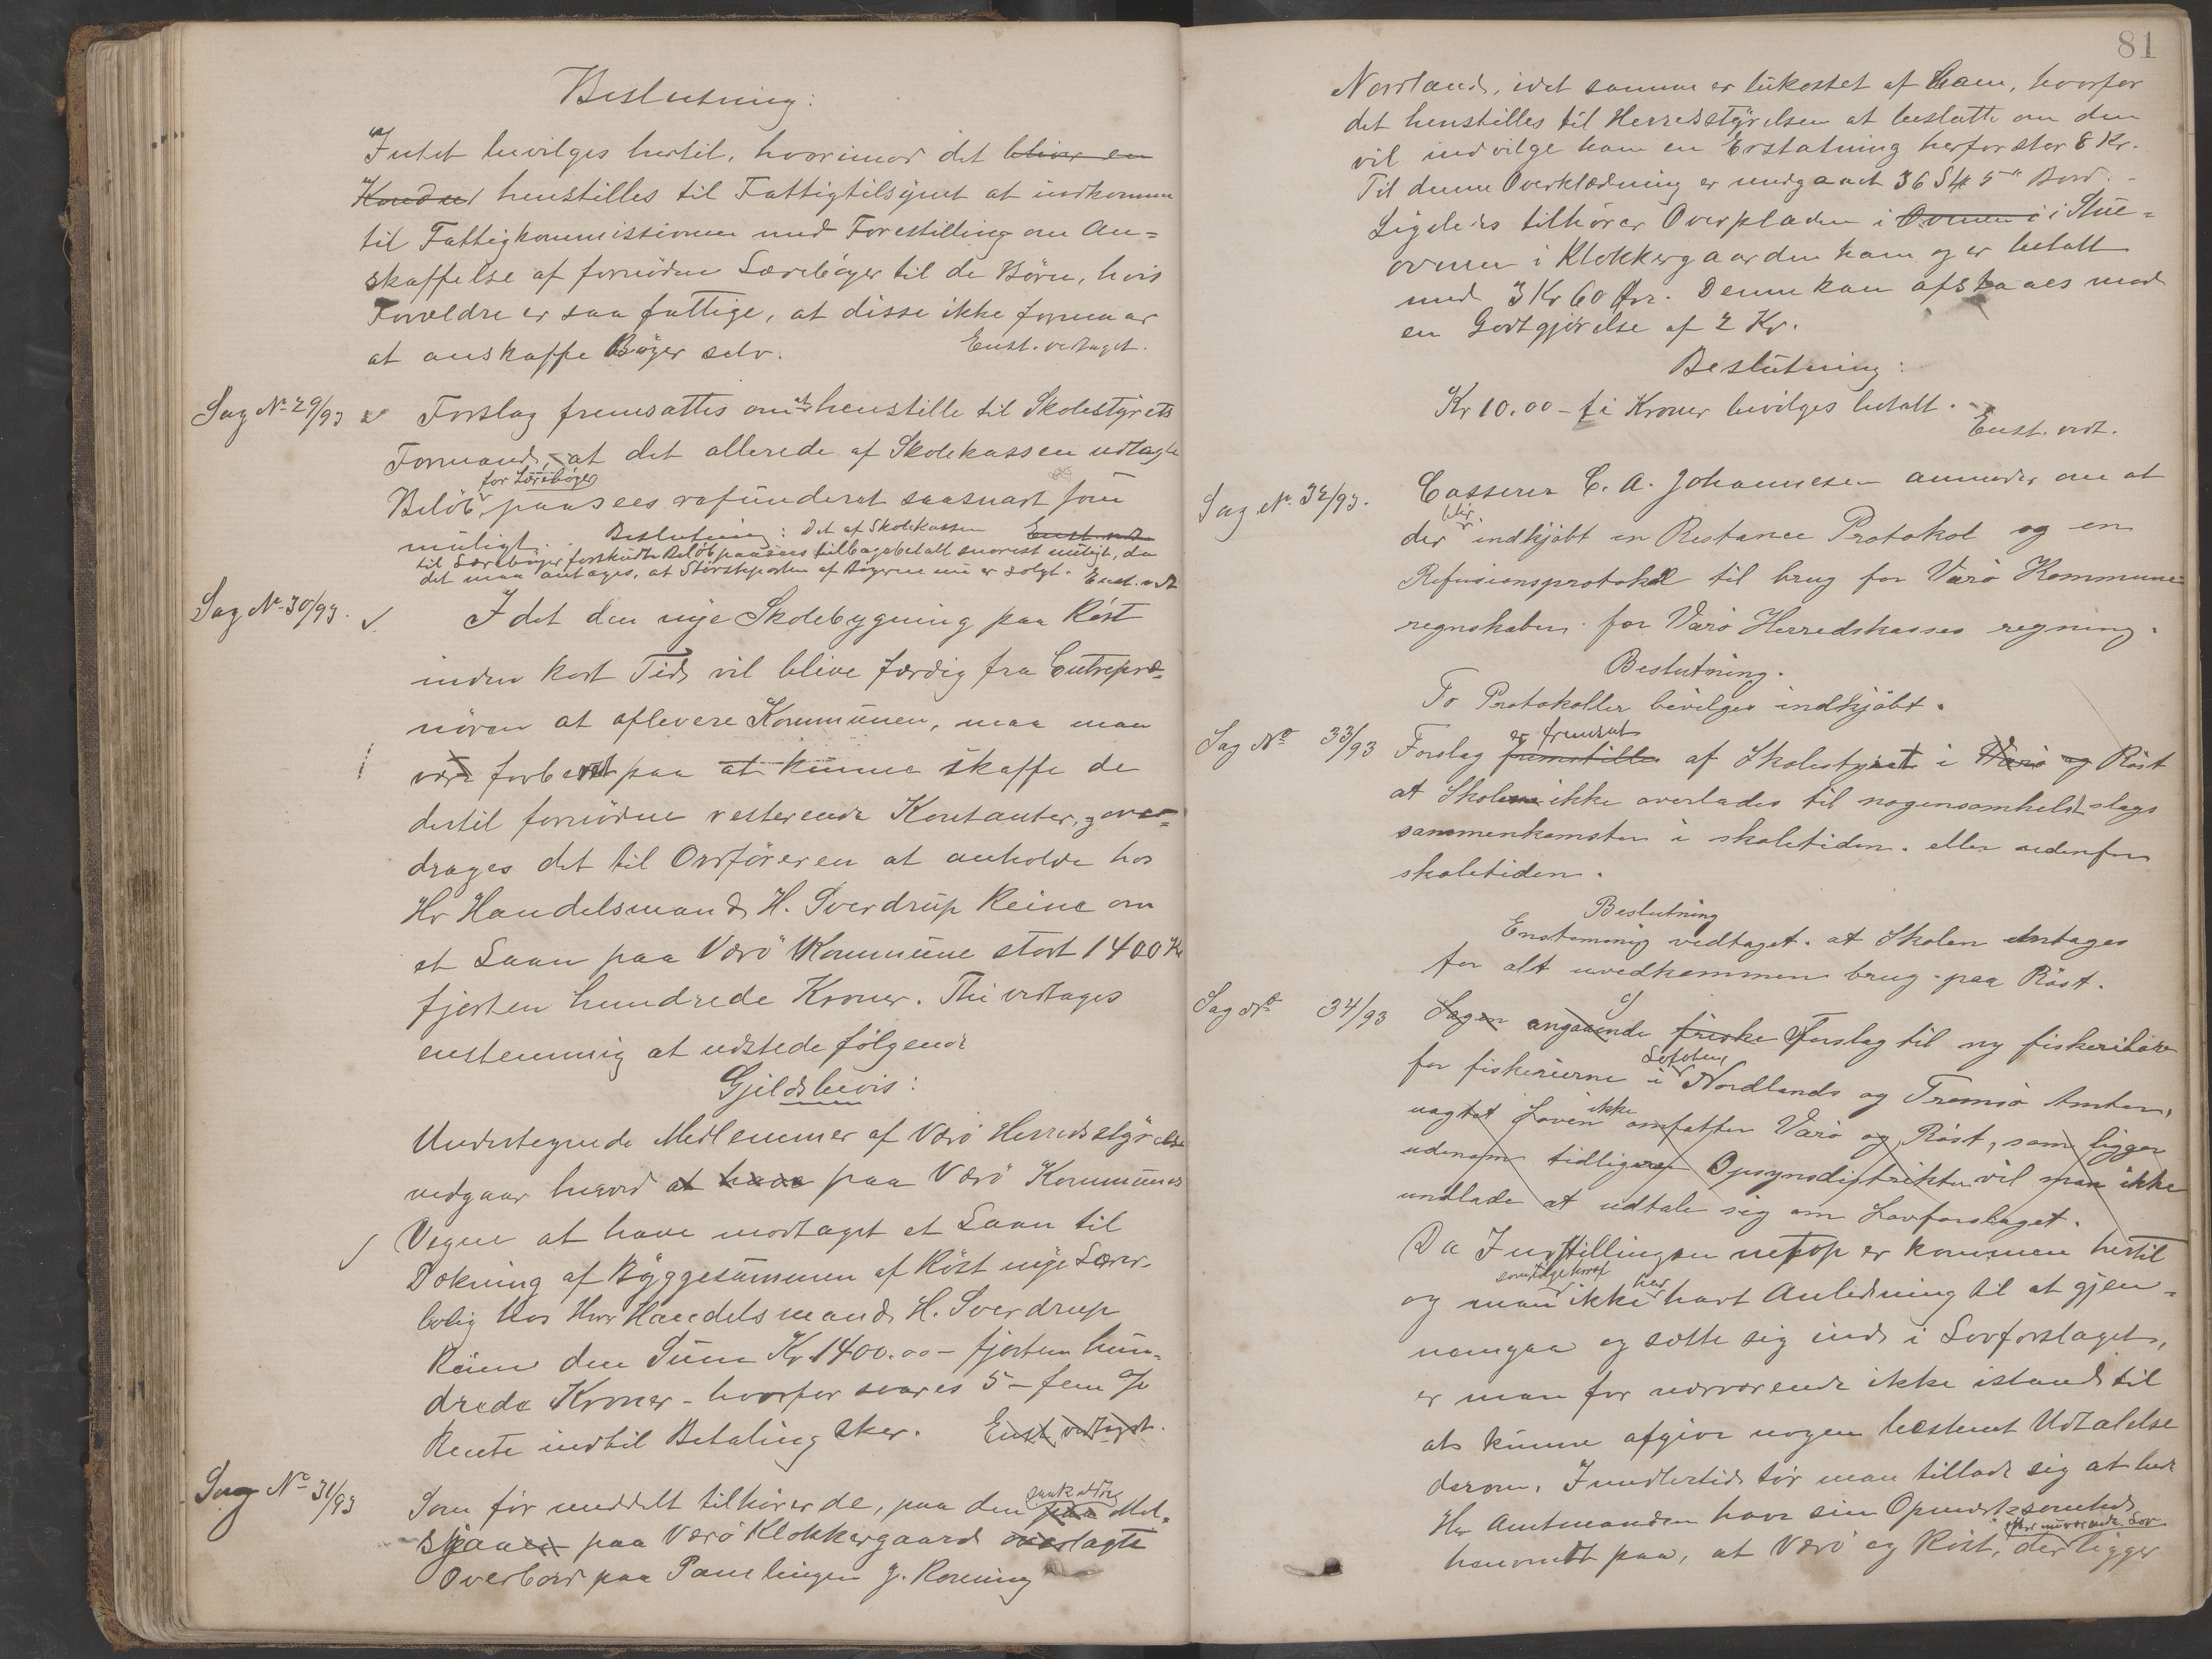 Beslutning:
Intet bevilges hertil, hvorimod det bliver en
henstilles til Fattigtilsynet at indkomme
til Fattigkommissionen med Forestilling om An=
skaffelse af fornödne Lærebøger til de Börn, hvis
Forældre er saa fattige, at disse ikke formaar
at anskaffe Bøger selv. Enst. vedtaget.
Sag No 29/93 Forslag fremsattes om at henstille til Skolestyrets
Formand, at det allerede af Skolekassen udlagte
for Lærebøger
Belöb paasees refunderet saasnart som
muligt. Beslutning: Det af Skolekassen Enst. vedt
til Lærebøger forskudte Belöb paasees tilbagebetalt snarest muligt, da
det maa antages, at Störsteparten af Bøgerne nu er solgt. Enst. vedt
Sag No 30/93. I det den nye Skolebygning paa Röst
inden kort Tid vil blive færdig fra Entrepre=
nören at aflevere Kommunen, maa man
være forberedt paa at kunne skaffe de
dertil fornödne resterende Kontanter, og over=
drages det til Ordföreren at anholde hos
Hr Handelsmand H. Sverdrup Reine om
et Laan paa Værö Kommune stort 1400 Kr
fjorten hundrede Kroner. Thi vedtages
enstemmig at udstede følgende
Gjeldsbevis:
Undertegnede Medlemmer af Værö Herredsstyrelse
vedgaar herved at have paa Værö Kommunes
Vegne at have modtaget et Laan til
Dækning af Byggesummen af Röst nye Lærer-
bolig hos Herr Handelsmand H. Sverdrup
Reine den Sum Kr 1400.00 – fjorten hun=
drede Kroner – hvorfor svares 5 – fem %
Rente indtil Betaling sker. Enst. vedtaget.
Sag No 31/93 Som før meddelt tilhörer de, paa den
paa Værö Klokkergaard overlagte
Overbord paa J. Rönning
81
Nordland, idet samme er bekostet af ham, hvorfor
det henstilles til Herredsstyrelsen at beslutte om den
vil indvilge ham en Erstatning herfor stor 8 Kr.
Til denne Overklædning er medgaaet 36 Stk 5" Bord. –
Ligeledes tilhörer Overpladen i Ovnen i i Stue=
ovnen i Klokkergaarden ham og er betalt
med 3 Kr 60 Ør. Denne kan afstaaes mod
en Godtgjörelse af 2 Kr.
Beslutning:
Kr 10.00 – ti Kroner bevilges betalt. –
Enst. vedt.
Sag No 32/93. Casserer C. A. Johannesen anmoder om at
blir
der indkjöbt en Restance Protokol og en
Refusionsprotokol til brug for Værö Kommune=
regnskaber for Værö Herredskasses regning.
Beslutning.
To Protokoller bevilges indkjöbt.
er fremsat
Sag No 33/93 Forslag fremstilles af Skolestyret i Værö og Röst
at Skolerne ikke overlades til nogensomhelst slags
sammenkomster i skoletiden. eller udenfor
skoletiden.
Beslutning
Enstemmig vedtaget. at Skolen undtages
for alt uvedkommen brug paa Röst.
Sag No 34/93 Sagen angaaende friske Forslag til ny fiskerilov
Lofoten,
for fiskerierne i Nordlands og Tromsö Amter,
ikke
uagtet Loven omfatter Værö og Röst, som ligger
udenom tidligere Opsynsdistrikter vil man ikke
undlade at udtale sig om Lovforslaget.
Da Indstillingen netop er kommen hertil
som følge heraf har
og man ikke havt Anledning til at gjen=
nemgaa og sætte sig ind i Lovforslaget,
er man for nærværende ikke istand til
at kunne afgive nogen bestemt Udtalelse
derom. Imidlertid tör man tillade sig at bede
Hr Amtmanden have sin Opmærksomhed
efter nuværende Lov
henvendt paa, at Værö og Röst, der ligger